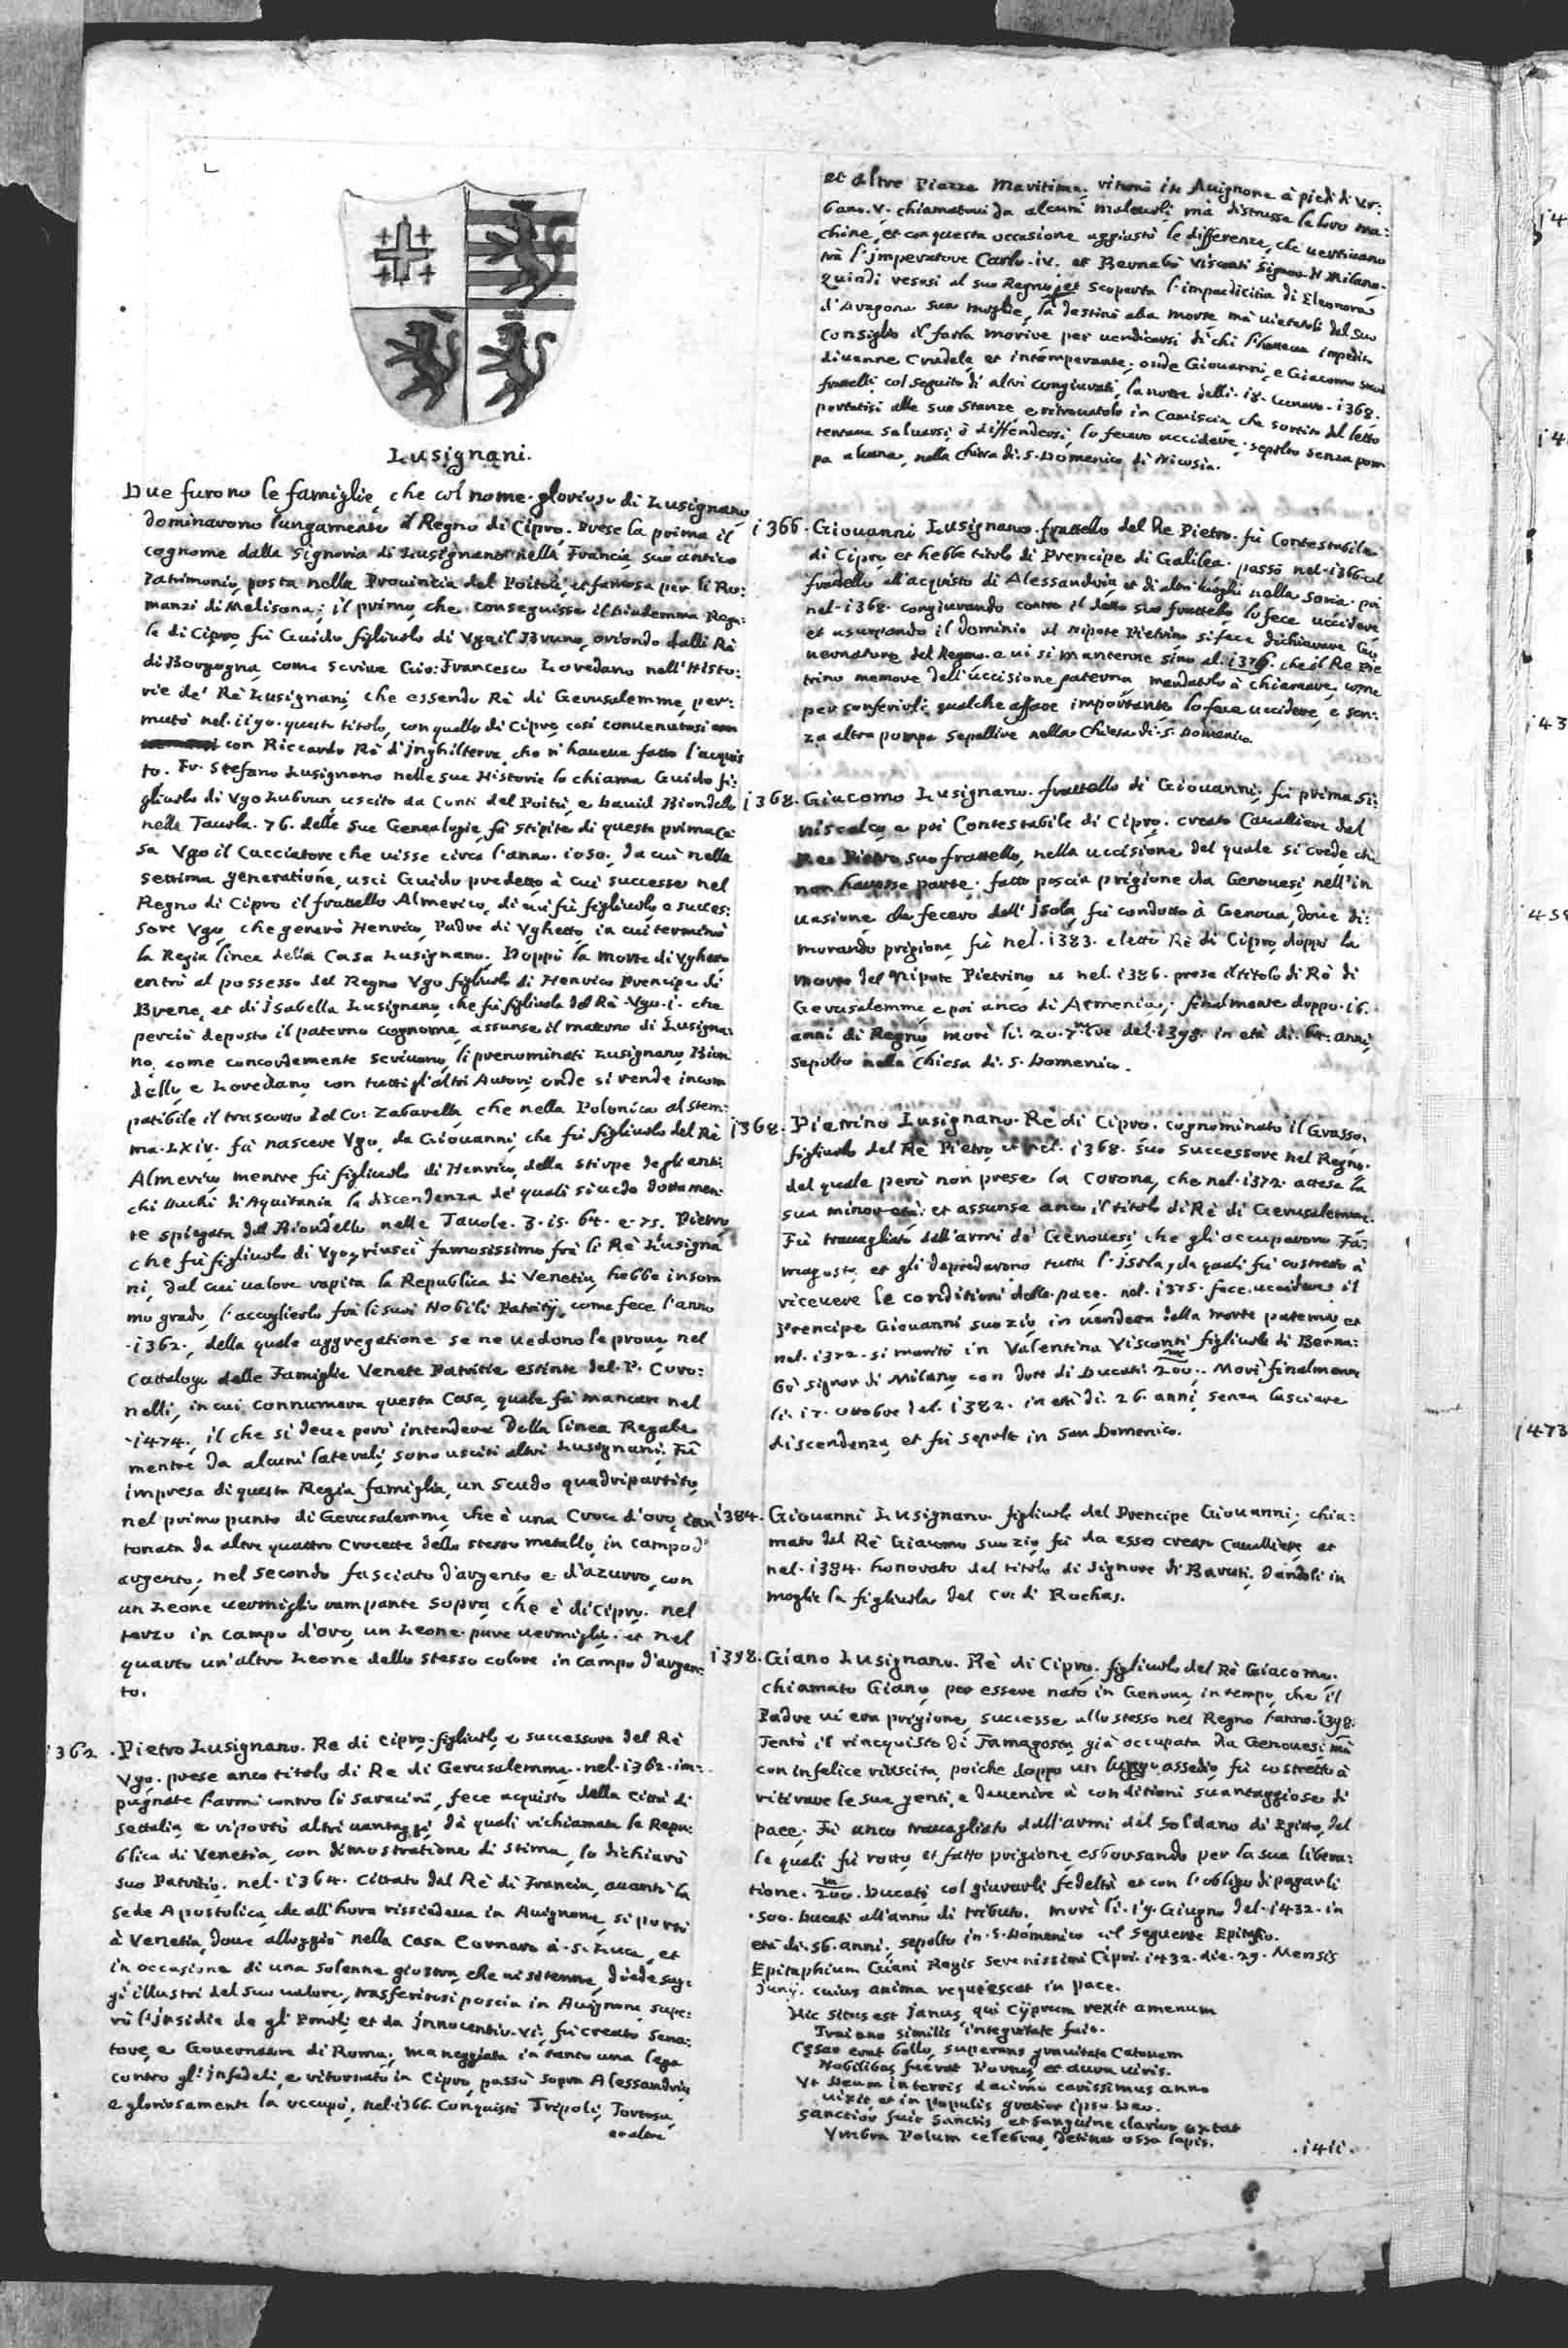 Lusignani.
Due furono le famiglie, che col nome glorioso di Lusignano
dominarono lungamente il Regno di Cipro. Prese la prima il
cognome dalla Signoria di Lusignano nella Francia, suo antico
Patrimonio, posta nella Prouincia del Poitù, et famosa per li Ro:
manzi di Melisona; il primo, che conseguisse il Diadema Rega:
le di Cipro, fù Guido figliuolo di Vgo il Bruno, oriondo dalli Rè
di Borgogna, come scriue Gio: Francesco Loredano nell'Histo:
rie de' Rè Lusignani, che essendo Rè di Gerusalemme, per:
mutò nel .1190. questo titolo, con quello di Cipro, così conuenutosi
con Riccardo Rè d'Inghilterra, che n'haueua fatto l'acquis
to. Fr. Stefano Lusignano nelle sue Historie lo chiama Guido fi:
gliuolo di Vgo Lubrun uscito da Conti del Poitù, e Dauid Biondello
nella Tauola .76. delle sue Genealogie, fà stipite di questa prima Ca:
sa Vgo il Cacciatore che uisse circa l'anno .1050. da cui nella
settima generatione, uscì Guido predetto à cui successe nel
Regno di Cipro il frattello Almerico, di cui fù figliuolo e succes:
sore Vgo, che generò Henrico, Padre di Vghetto in cui terminò
la Regia linea della Casa Lusignano. Doppò la morte di Vghetto
entrò al possesso del Regno Vgo figliuolo di Henrico Prencipe di
Brene, et di Isabella Lusignano, che fù figliuola del Rè Vgo .I. che
perciò deposto il paterno cognome, assunse il materno di Lusigna:
no, come concordemente scriuono, li prenominati Lusignano, Bion
dello, e Loredano, con tutti gl'altri Autori, onde si rende incom
patibile il trascorso del Co: Zabarella, che nella Polonica al stem:
ma .LXIV. fà nascere Vgo, da Giouanni, che fù figliuolo del Rè
Almerico, mentre fù figliuolo di Henrico, della stirpe degli anti:
chi Duchi di Aquitania, la discendenza de' quali si uede dottamen:
te spiegata dal Biondello nelle Tauole .3. 15. 64. e .75. Pietro
che fù figliuolo di Vgo, riuscì famosissimo frà li Rè Lusigna
ni, dal cui ualore rapita la Republica di Venetia, hebbe in som
mo grado, l'accoglierlo frà li suoi Nobili Patritij, come fece l'anno
.1362., della quale aggregatione se ne uedono le proue, nel
Cattalogo delle Famiglie Venete Patritie estinte del P. Coro:
nelli, in cui, connumera questa Casa, quale fà mancare nel
.1474., il che si deue però intendere della linea Regale,
mentre da alcuni laterali, sono usciti altri Lusignani. Fù
impresa di questa Regia famiglia, un Scudo quadripartito,
nel primo punto di Gerusalemme, che è una Croce d'oro, can
tonata da altre quattro Crocette dello stesso metallo, in campo d'
argento; nel secondo fasciato d'argento e d'azurro, con
un Leone uermiglio rampante sopra, che è di Cipro. nel
terzo in campo d'oro, un Leone pure uermiglio. et nel
quarto un'altro Leone dello stesso colore in campo d'argen:
to.
1362. Pietro Lusignano. Re di Cipro. figliuolo, e successore del Rè
Vgo. prese anco titolo di Re di Gerusalemme. nel .1362. im:
pugnate l'armi contro li Saracini, fece acquisto della Città di
Settalia, e riportò altri uantaggi, dà quali richiamata la Repu:
blica di Venetia, con dimostratione di stima, lo dichiarò
suo Patritio. nel .1364. Cittato dal Rè di Francia, auanti la
Sede Apostolica, che all'hora rissiedeua in Auignone, si portò
à Venetia, doue alloggiò nella Casa Cornaro à .S. Luca, et
in occasione di una solenne giostra, che ui si tenne, diede sag:
gi illustri del suo ualore, trasferitosi poscia in Auignone, supe:
rò l'insidie de gl'Emoli, et da Innocentio .VI. fù creato Sena:
tore, e Gouernatore di Roma; maneggiata in tanto una lega
contro gl'Infedeli, e ritornato in Cipro, passò sopra Alessandria
e gloriosamente la occupò, nel .1366. Conquistò Tripoli, Tortosa,
et altre
et altre Piazze Maritime, ritornò in Auignone à piedi di Vr:
bano .V. chiamatoui da alcuni maleuoli, mà distrusse le loro ma:
chine, et con questa occasione aggiustò le differenze, che uertiuano
trà l'imperatore Carlo .IV. et Bernabò Visconti Signor di Milano.
quindi resosi al suo Regno, et scoperta l'impudicitia di Eleonora
d'Aragona sua moglie, la destinò alla morte mà uietatoli dal suo
Consiglio il farla morire per uendicarsi di chi l'haueua impedito
diuenne Crudele, et intemperante, onde Giouanni, e Giacomo suoi
frattelli, col seguito di altri congiurati, la notte delli .18. Genaro .1368.
portatisi alle sue Stanze, e ritrouatolo in Camiscia, che sortito del letto
tentaua saluarsi, ò diffendersi, lo fecero uccidere, sepolto senza pom
pa alcuna, nella Chiesa di .S. Domenico di Nicosia.
1366. Giouanni Lusignano frattello del Re Pietro. fù Contestabile
di Cipro, et hebbe titolo di Prencipe di Galilea. passò nel .1366. col
frattello all'acquisto di Alessandria, et di altri luoghi nella Soria. poi
nel .1368. congiurando contro il detto suo frattello lo fece uccidere
et usurpando il dominio al nipote Pietrino, si fece dichiarare Go
uernatore del Regno. e ui si mantenne sino al .1375. che il Re Pie
trino memore dell'uccisione paterna, mandatolo à chiamare, come
per conferirli qualche affare importante lo fece uccidere, e sen:
za altra pompa sepellire nella Chiesa di .S. Domenico.
1368. Giacomo Lusignano. frattello di Giouanni, fù prima Si:
niscalco, e poi Contestabile di Cipro. creato Caualliere dal
Rè Pietro suo frattello, nella uccisione del quale si crede che
non hauesse parte. fatto poscia prigione da Genouesi, nell'in
uasione che fecero dell'Isola, fù condotto à Genoua, doue di:
morando prigione, fù nel .1383. eletto Rè di Cipro, doppò la
morte del Nipote Pietrino, et nel .1386. prese il titolo di Rè di
Gerusalemme, e poi anco di Armenia; finalmente doppo .16.
anni di Regno morì li: 20. 7mbre del .1398. in età di: 64: anni,
sepolto nella Chiesa di .S. Domenico.
1368. Pietrino Lusignano. Rè di Cipro. cognominato il Grasso.
figliuolo del Rè Pietro, et nel .1368. suo successore nel Regno.
del quale però non prese la Corona, che nel .1372. attesa la
sua minor età: et assunse anco il titolo di Rè di Gerusalemme.
Fù trauagliato dall'armi de' Genouesi, che gli occuparono Fa:
magosta, et gli depredarono tutta l'Isola, da quali fù costretto à
riceuere le conditioni della pace. nel .1375. fece uccidere il
Prencipe Giouanni suo zio, in uendetta della morte paterna, et
nel .1372. si maritò in Valentina Visconti figliuola di Berna:
bò Signor di Milano, con dote di Ducati 200m. Morì finalmente
li .17. ottobre del .1382. in età di .26. anni, senza lasciare
discendenza, et fù sepolto in San Domenico.
1384. Giouanni Lusignano. figliuolo del Prencipe Giouanni, chia:
mato dal Rè Giacomo suo zio, fù da esso creato Caualliere, et
nel .1384. honorato del titolo di Signore di Baruti, dandoli in
moglie la figliuola del Co: di Rochas.
1398. Giano Lusignano. Rè di Cipro. figliuolo del Rè Giacomo.
chiamato Giano, per essere nato in Genoua, in tempo, che il
Padre ui era prigione, successe allo stesso nel Regno l'anno .1398.
Tentò il riacquisto di Famagosta, già occupata da Genouesi, mà
con infelice riuscita, poiche doppo un lungo assedio, fù costretto à
ritirare le sue genti, e deuenire à conditioni suantaggiose di
pace. Fù anco trauagliato dall'armi del Soldano di Egitto, dal
le quali fù rotto, et fatto prigione, esborsando per la sua libera:
tione .200m. Ducati, col giurarli fedeltà, et con l'obligo di pagarli
.500. Ducati all'anno di tributo. morì li .19. Giugno del .1432. in
età di .56. anni. sepolto in .S. Domenico col seguente Epitafio.
Epitaphium Giani Regis Serenissimi Cipri. 1432. die .29. Mensis
Junij. cuius anima requiescat in pace.
Hic Situs est Janus, qui Cÿprum rexit amenum
Traiano similis integritate fuit.
Cesar erat bello, superans grauitate Catonem
Nobilibus fuerat Portus, et aura uiris.
Vt Deum in terris decimo carissimus anno
uixit, et in Populis gratior ipso Deo.
Sanctior fuit Sanctis, et Sanguine clarior extat
Vmbra Polum celebrat, detinet ossa lapis.
.1411.